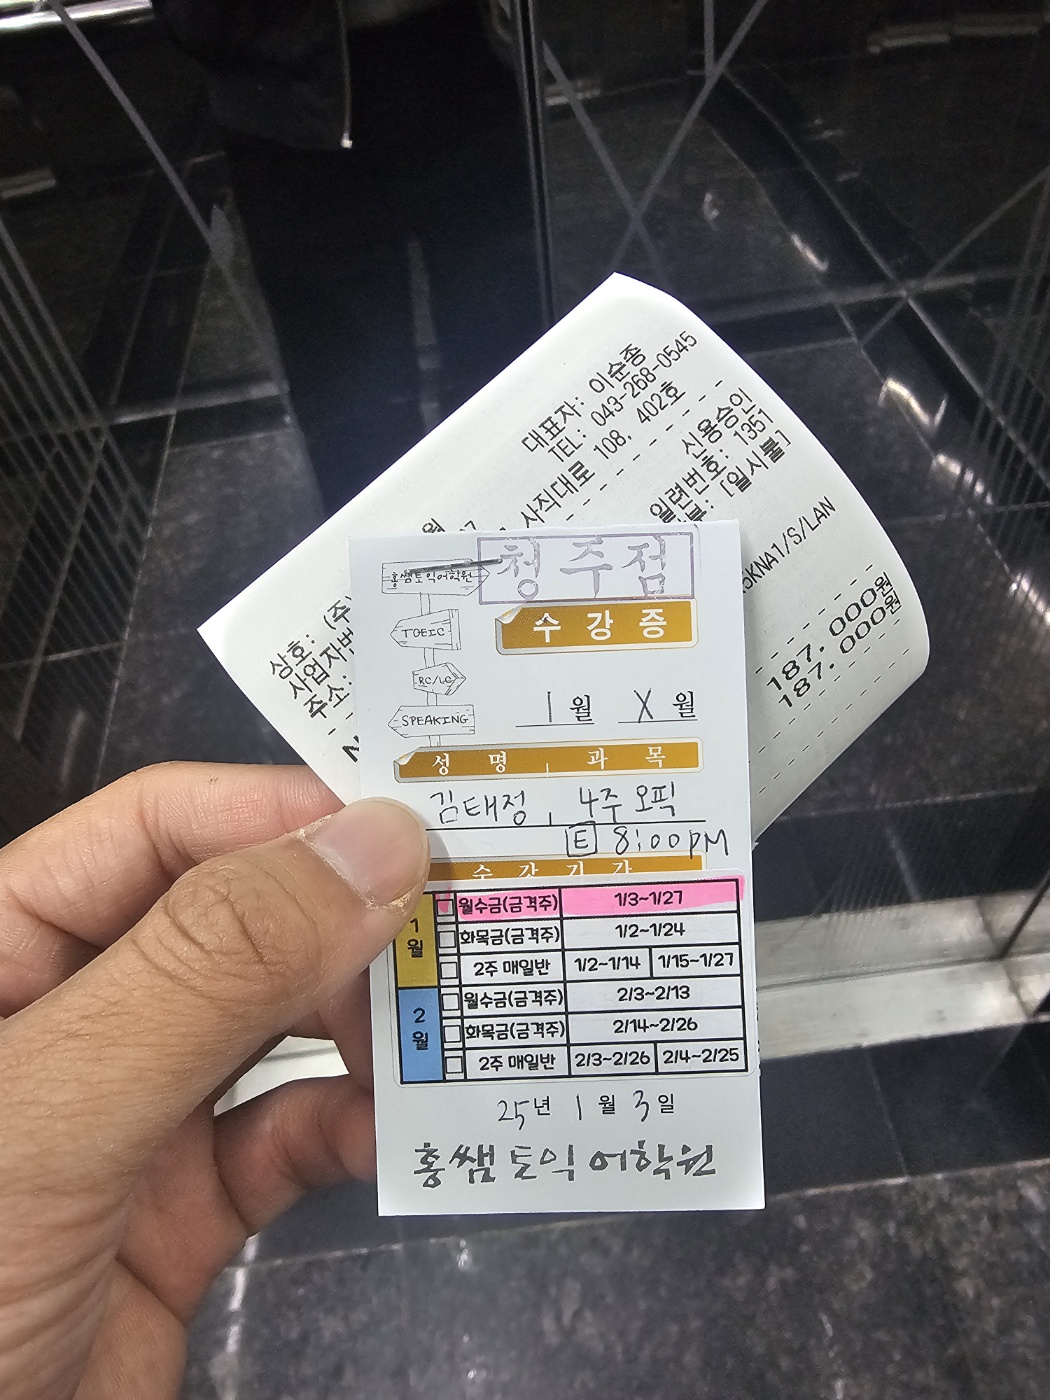 대표자: 이순종
TEL: 043-268-0545
사직대로 108, 402호
신용승인
일련번호: 1357
[일시불]
KNA1/S/LAN
187,000원
187,000원
상호: (주)
사업자번
주소:
홍쌤토익어학원
청주점
TOEIC
수강증
RC/LC
SPEAKING
1월 X월
성명, 과목
김태정, 4주 오픽
E 8:00PM
수강기간
1월
월수금(금격주) 1/3~1/27
화목금(금격주) 1/2~1/24
2주 매일반 1/2~1/14 1/15~1/27
2월
월수금(금격주) 2/3~2/13
화목금(금격주) 2/14~2/26
2주 매일반 2/3~2/26 2/4~2/25
25년 1월 3일
홍쌤토익어학원